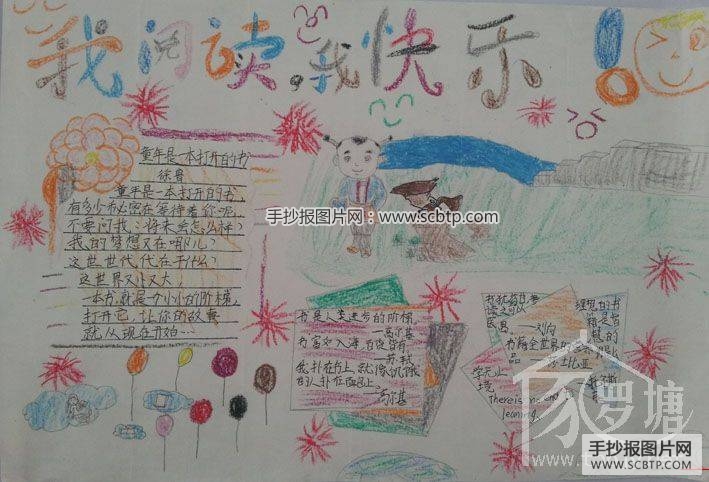 我阅读,我快乐!
童年是一本打开的书
徐鲁
童年是一本打开的书,
有多少秘密在等待着你呢,
不要问我:将来会怎么样?
我的梦想又在哪儿?
这世世代代在干什么?
这世界又小又大,
一本书就是一个小小的阶梯,
打开它,让你的故事
就从现在开始…
手抄报图片网:www.scbtp.com
书是人类进步的阶梯,
——高尔基
书富如入海,百货皆有.
——苏轼
我扑在书上,就像饥饿
的人扑在面包上.
——高尔基
书犹药也,善
读之可以
医愚
——刘向
理想的书
籍是智
慧的
学无止
境
There is no end
learning.
手抄报图片网
WWW.SCBTP.COM